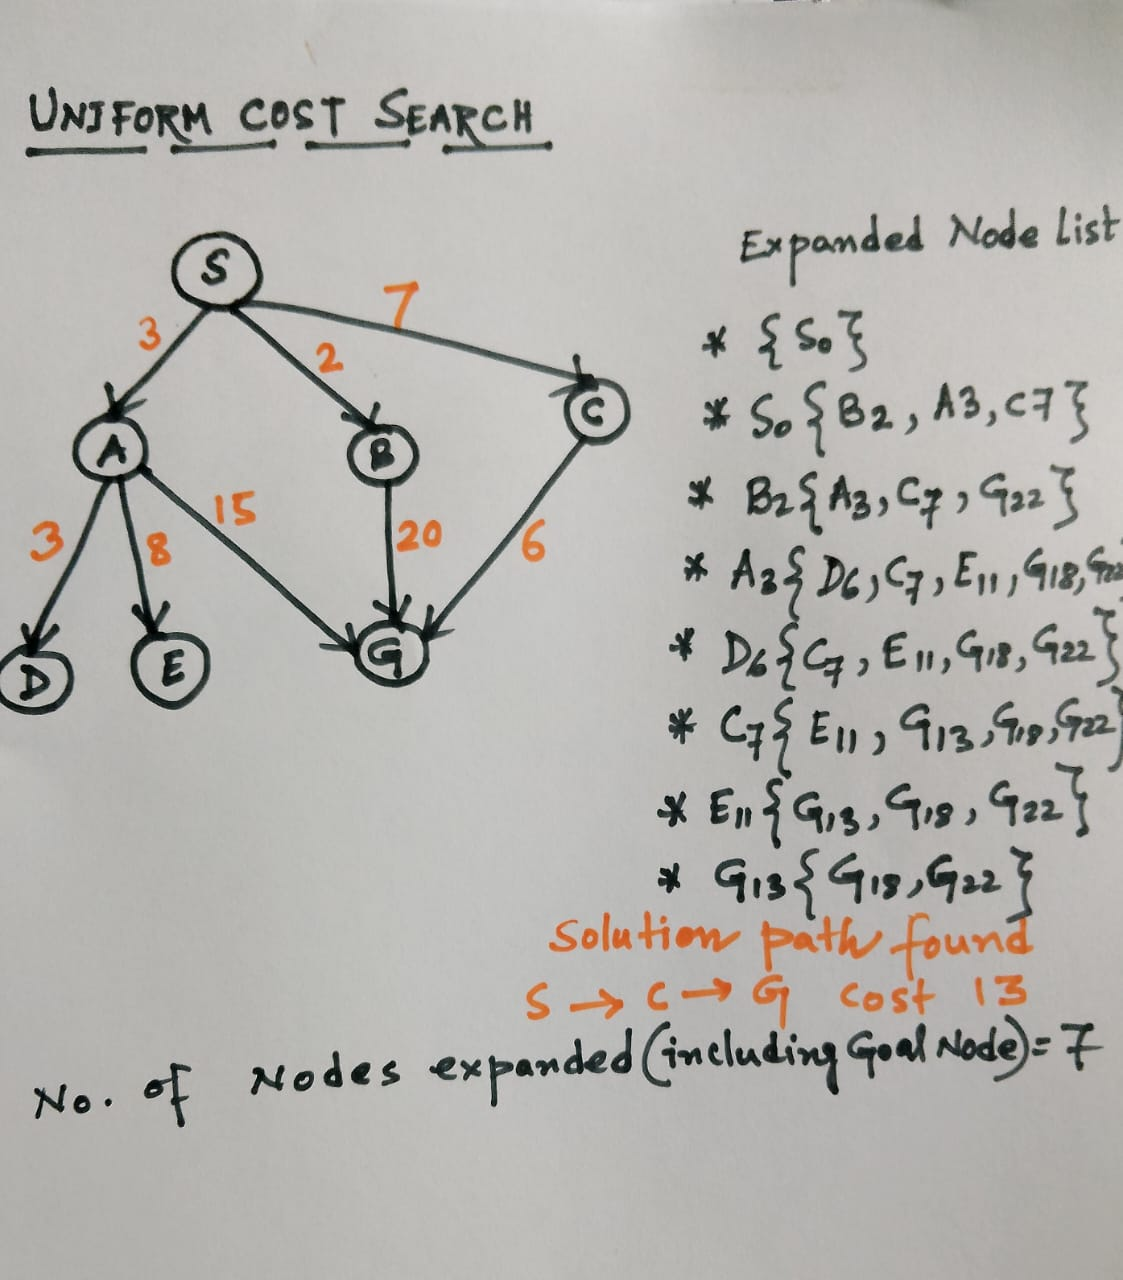 UNIFORM COST SEARCH
S
3
2
7
A
B
C
3
8
15
20
6
D
E
G
Expanded Node List
* {S0}
* S0{B2, A3, C7}
* B2{A3, C7, G22}
* A3{D6, C7, E11, G18, G22
* D6{C7, E11, G18, G22}
* C7{E11, G13, G18, G22}
* E11{G13, G18, G22}
* G13{G18, G22}
Solution path found
S → C → G cost 13
No. of Nodes expanded (including Goal Node) = 7